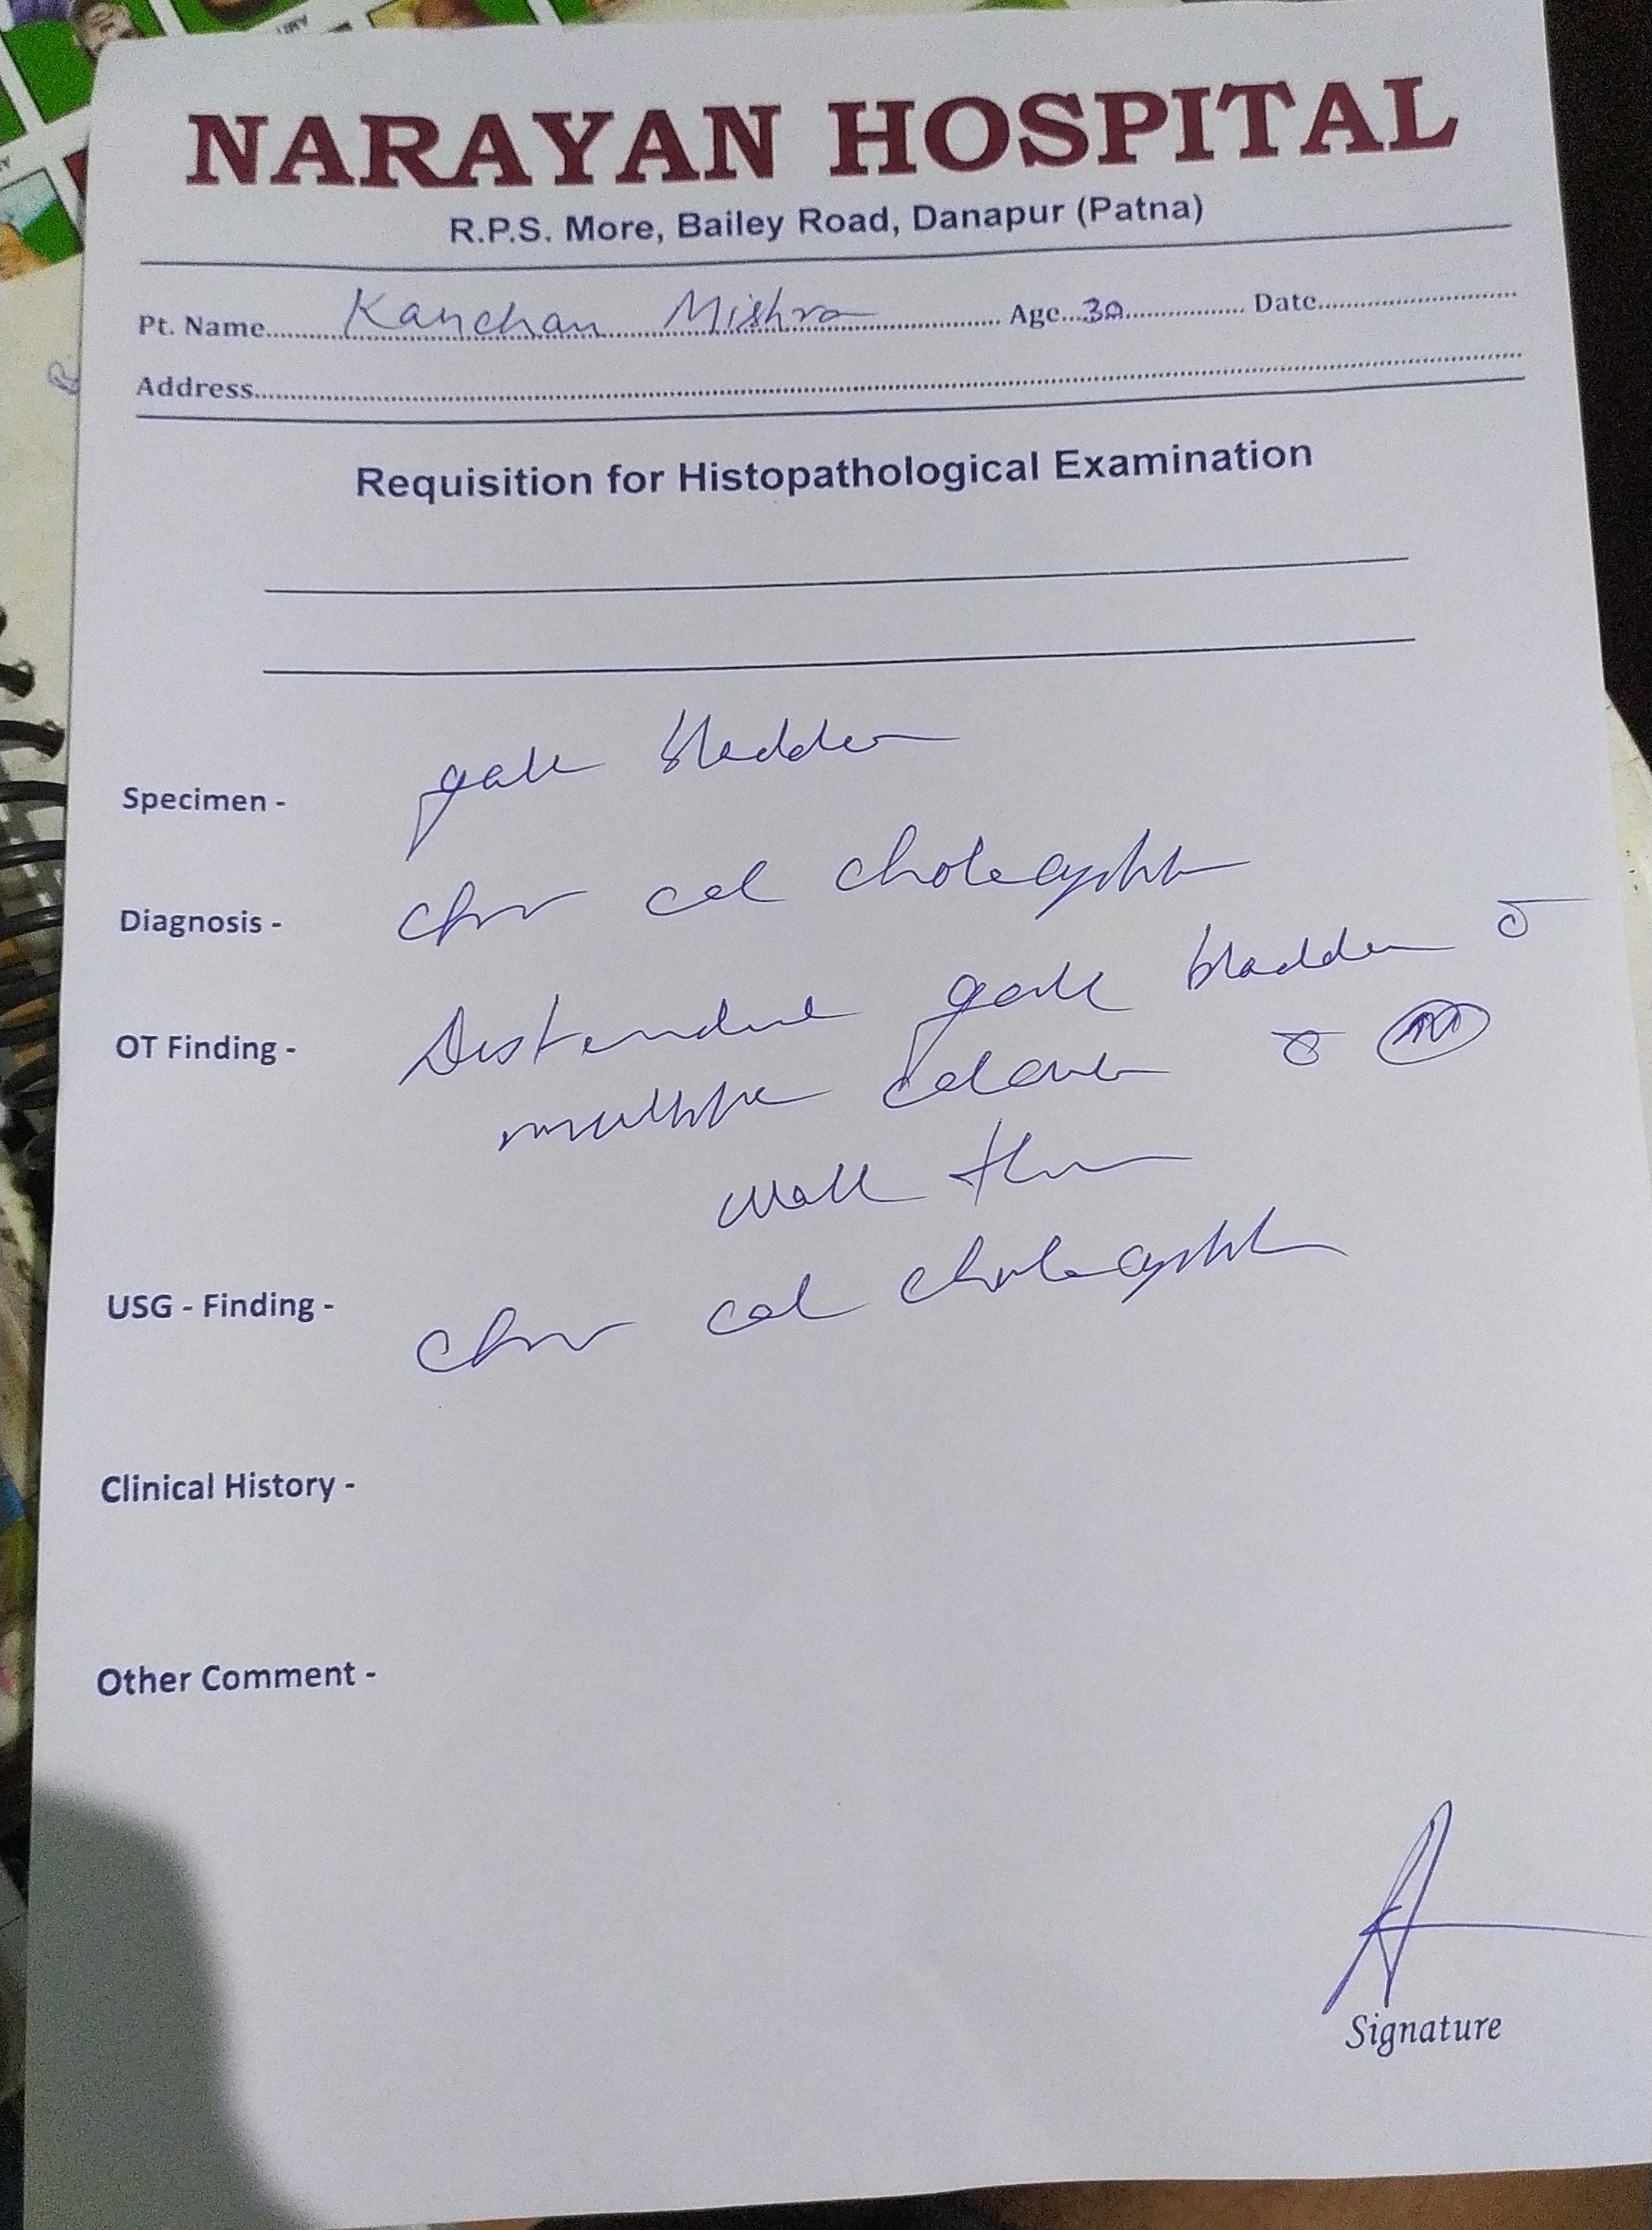 NARAYAN HOSPITAL
R.P.S. More, Bailey Road, Danapur (Patna)
Pt. Name Kanchan Mishra Age 30 Date
Address
Requisition for Histopathological Examination
Specimen - gall bladder
Diagnosis - chr cal cholecystitis
OT Finding - Distended gall bladder c̄
multiple calculi c̄
wall
USG - Finding - chr cal cholecystitis
Clinical History -
Other Comment -
Signature